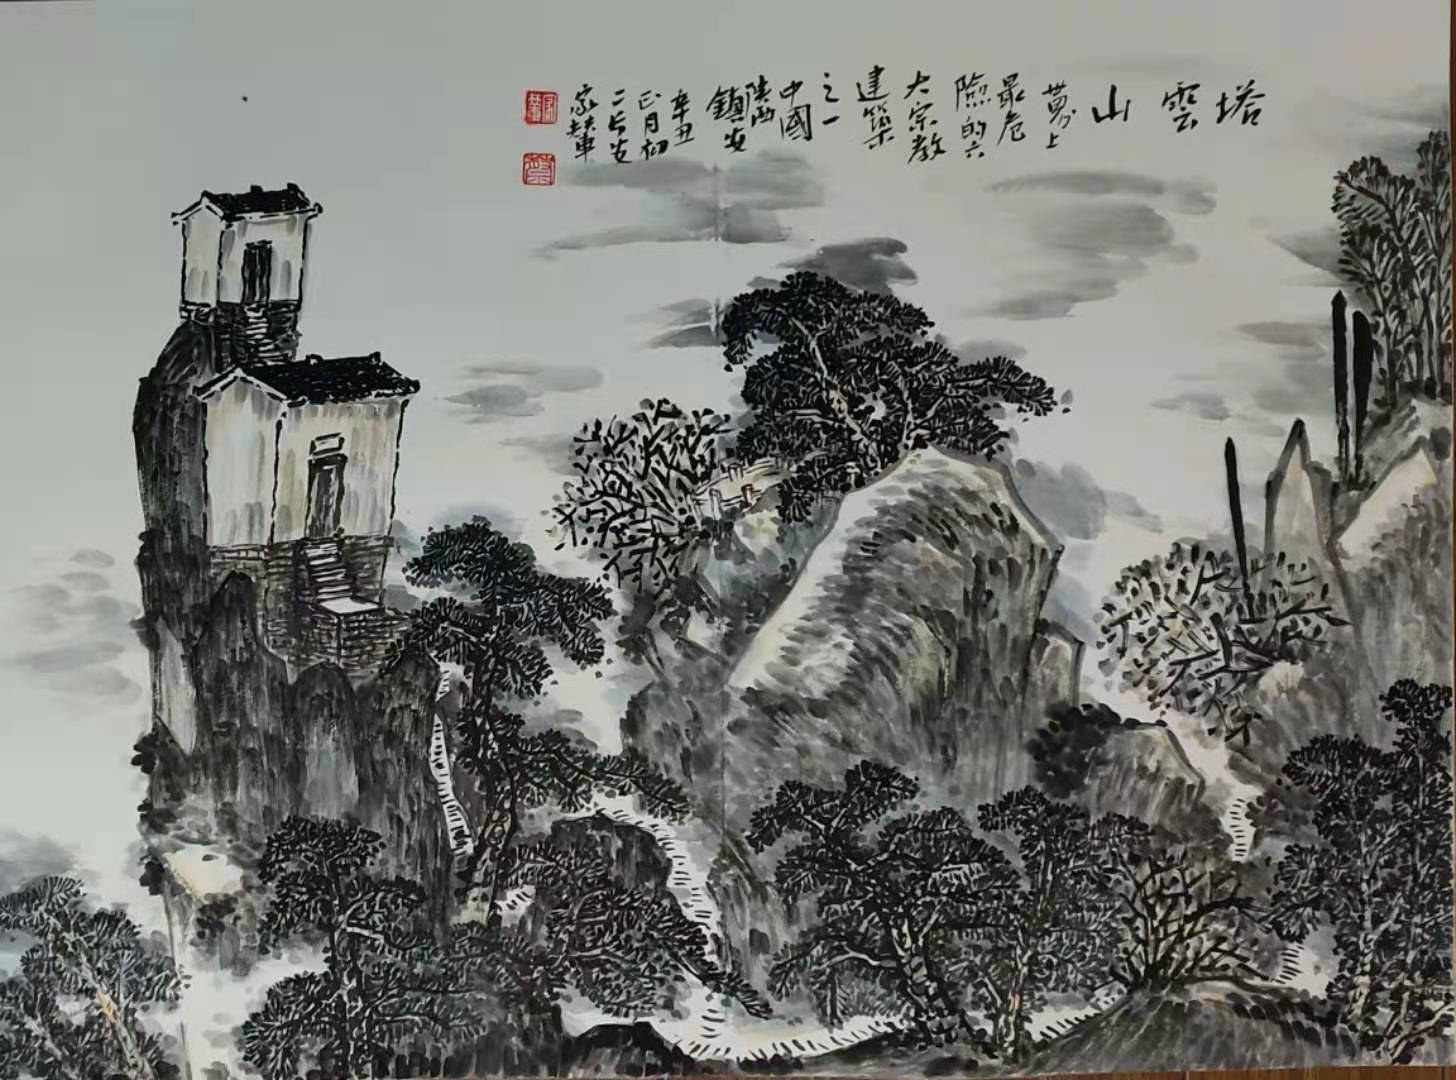 塔雲山
世界上
最危
險的六
大宗教
建築
之一
中國
陕西
鎮安
辛丑
正月初
二长安
家輦